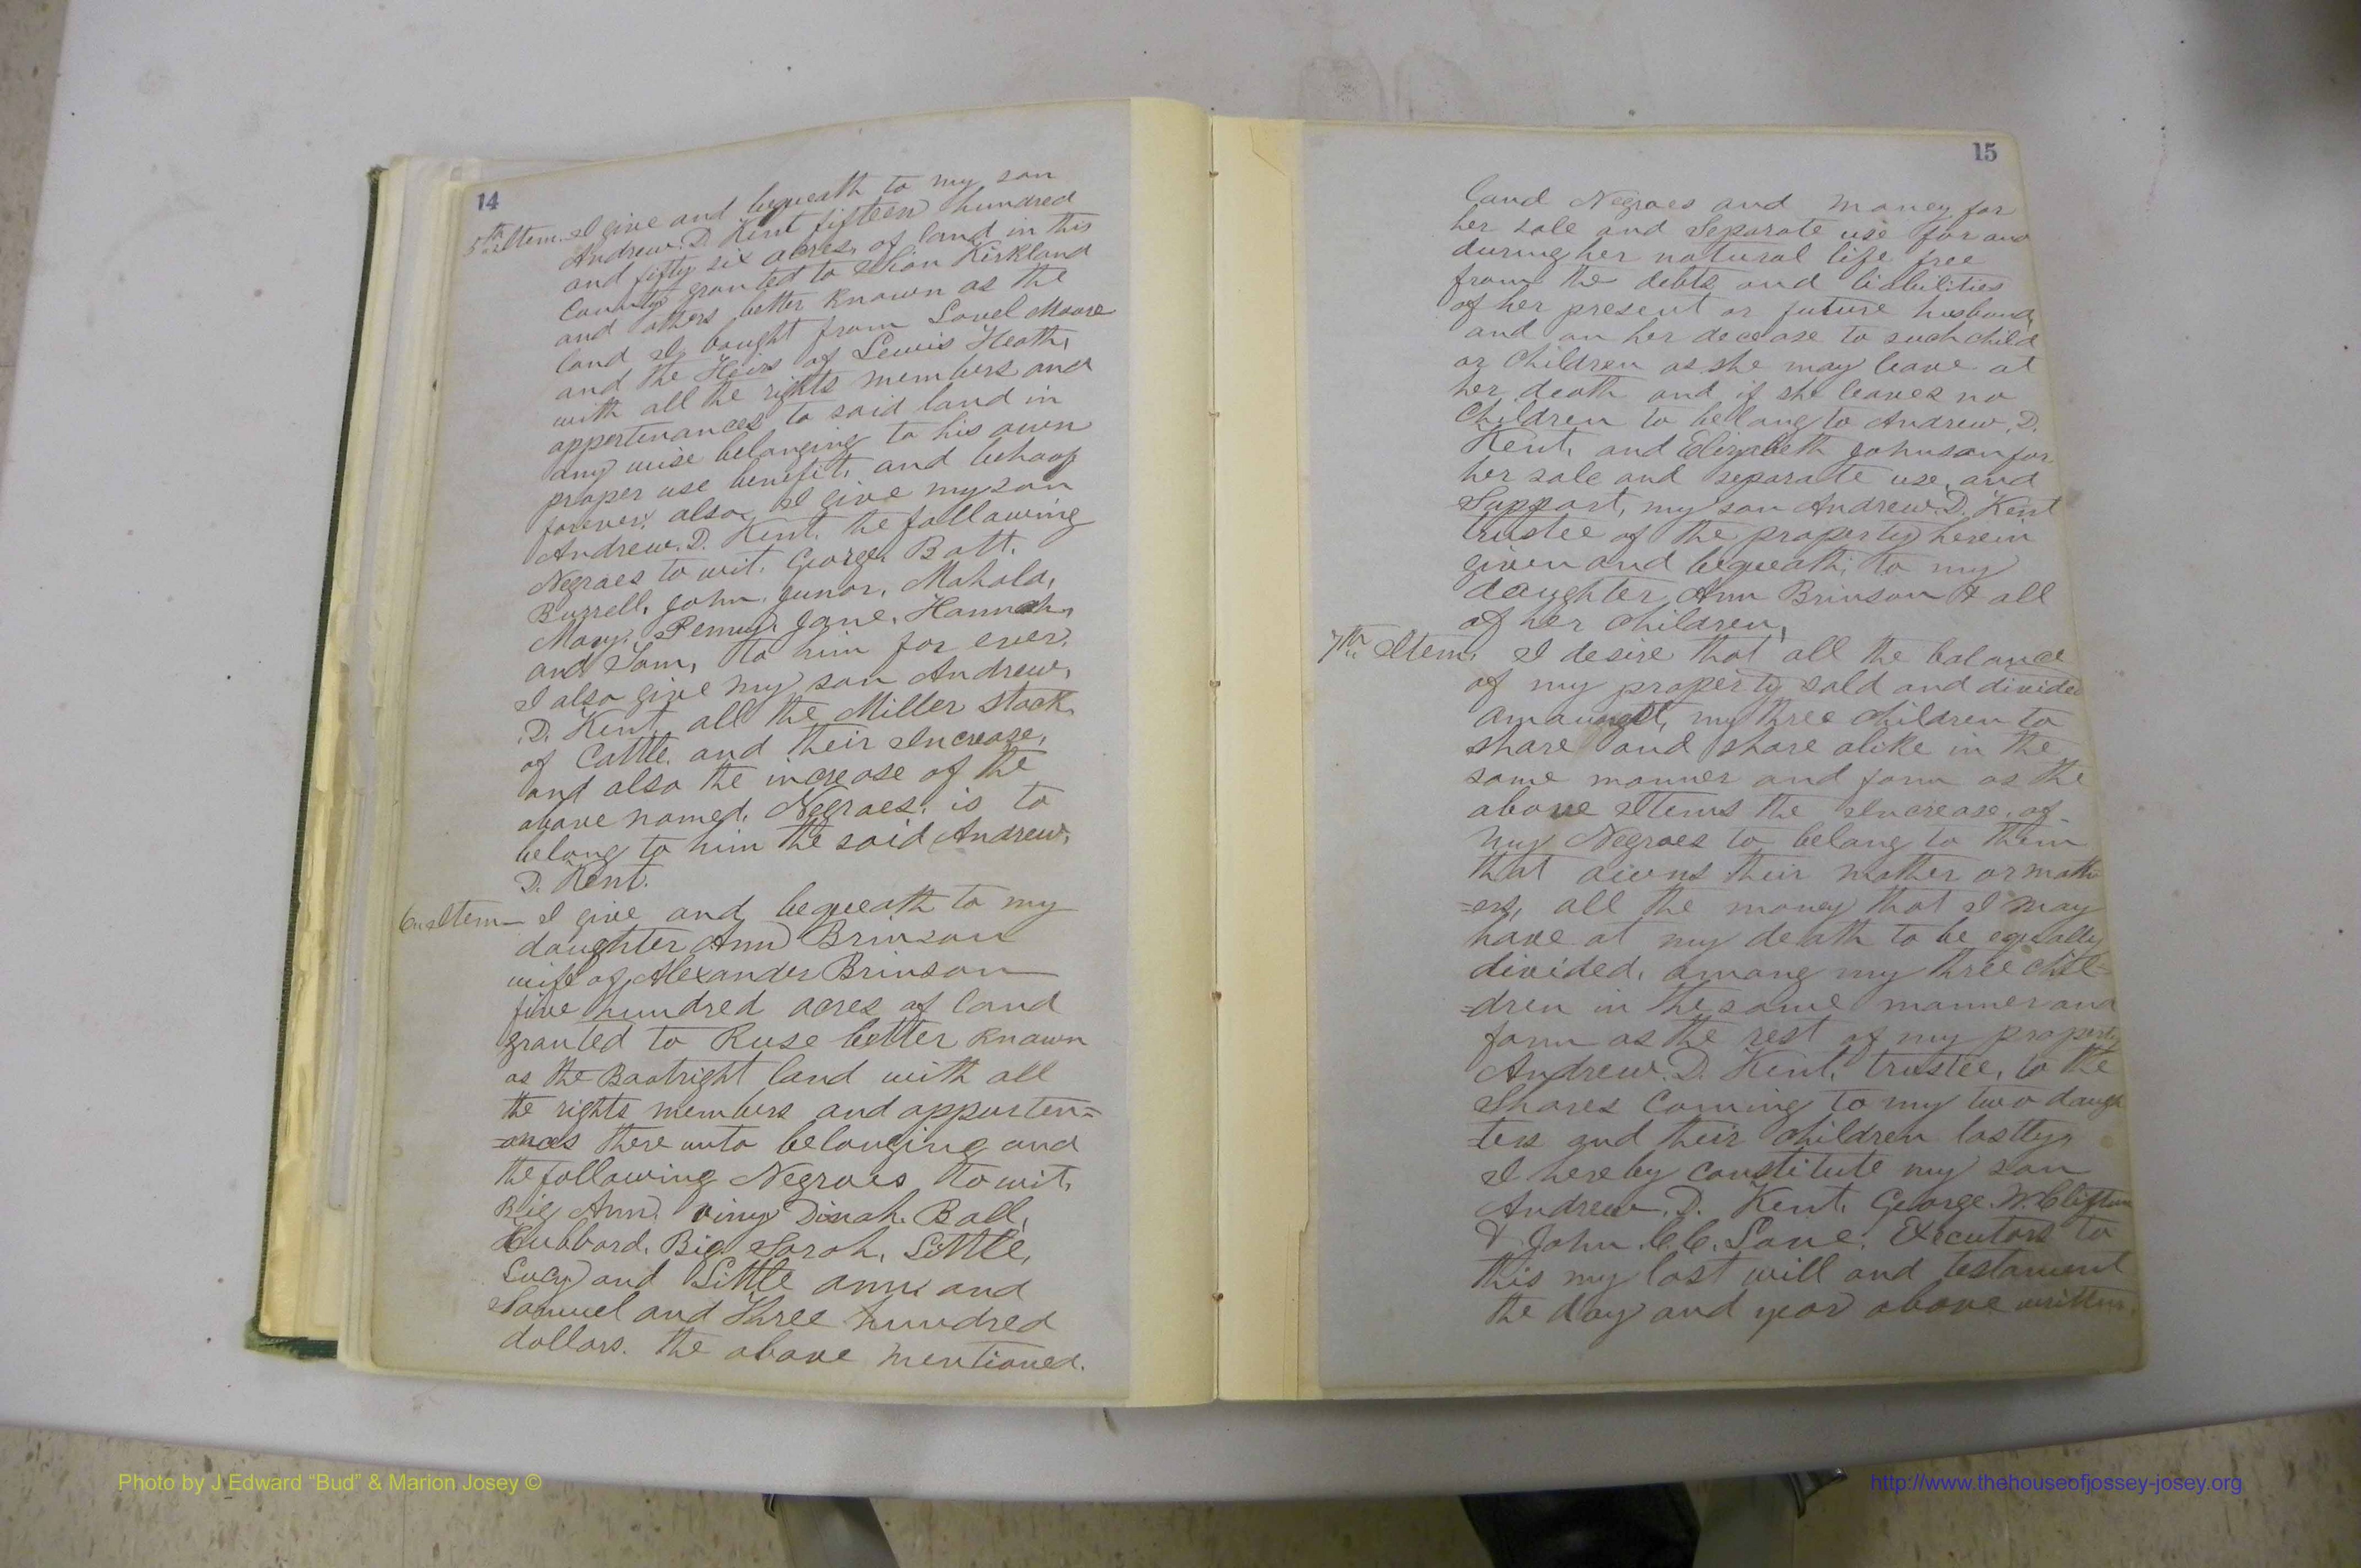 14
5th Item. I give and bequeath to my son
Andrew. D. Kent fifteen hundred
and fifty six acres, of land in this
County granted to Sion Kirkland
and others better known as the
land I bought from Lovel Moore
and the Heirs of Lewis Heath,
with all the rights members and
appertenances to said land in
any wise belonging to his own
proper use benefit, and behoof
forever, also, I give my son
Andrew. D. Kent. the following
Negroes to wit. George, Batt.
Burrell, John, Junor, Mahala,
Mary, Penny, Jane, Hannah,
and Tom, to him for ever,
I also give my son Andrew,
.D. Kent, all the Miller stock
of Cattle, and their Increase,
and also the increase of the
above named, Negroes, is to
belong to him the said Andrew,
D. Kent.
6th Item I give and bequeath to my
daughter Ann Brinson
wife of Alexander Brinson
five hundred acres of land
granted to Ruse better known
as the Baotright land with all
the rights members and appurten=
=ances there unto belonging and
the following Negroes to wit,
Big Ann. viny Dinah. Ball,
Hubbard. Big. Sarah, Little,
Lucy and Little ann and
Samuel and Three hundred
dollars. the above mentioned.
15
land Negroes and money for
her sole and Separate use for and
during her natural life free
from the debts and liabilities
of her present or future husband,
and on her decease to such child
or Children as she may leave at
her death and if she leaves no
Children to belong to Andrew. D.
Kent, and Elizabeth Johnson for
her sole and separate use, and
Support, my son Andrew. D. Kent
trustee of the property herein
given and bequeath, to my
daughter Ann Brinson & all
of her children,
7th Item, I desire that all the balance
of my property sold and divided
amoungst, my three children to
share and share alike in the
same manner and form as the
above Items the Increase, of
my Negroes to belong to them
that owns their mother or moth
=ers, all the money that I may
have at my death to be equally
divided, among my three chil=
=dren in the same manner and
form as the rest of my property
Andrew. D. Kent. trustee, to the
Shares Coming to my two daugh
=ters and their children lastly,
I hereby constitute my son
Andrew. D. Kent. George. W. Clifton
& John. C. C. Lane. Executors to
this my last will and testament
the day and year above written.
Photo by J Edward “Bud” & Marion Josey ©
http://www.thehouseofjossey-josey.org